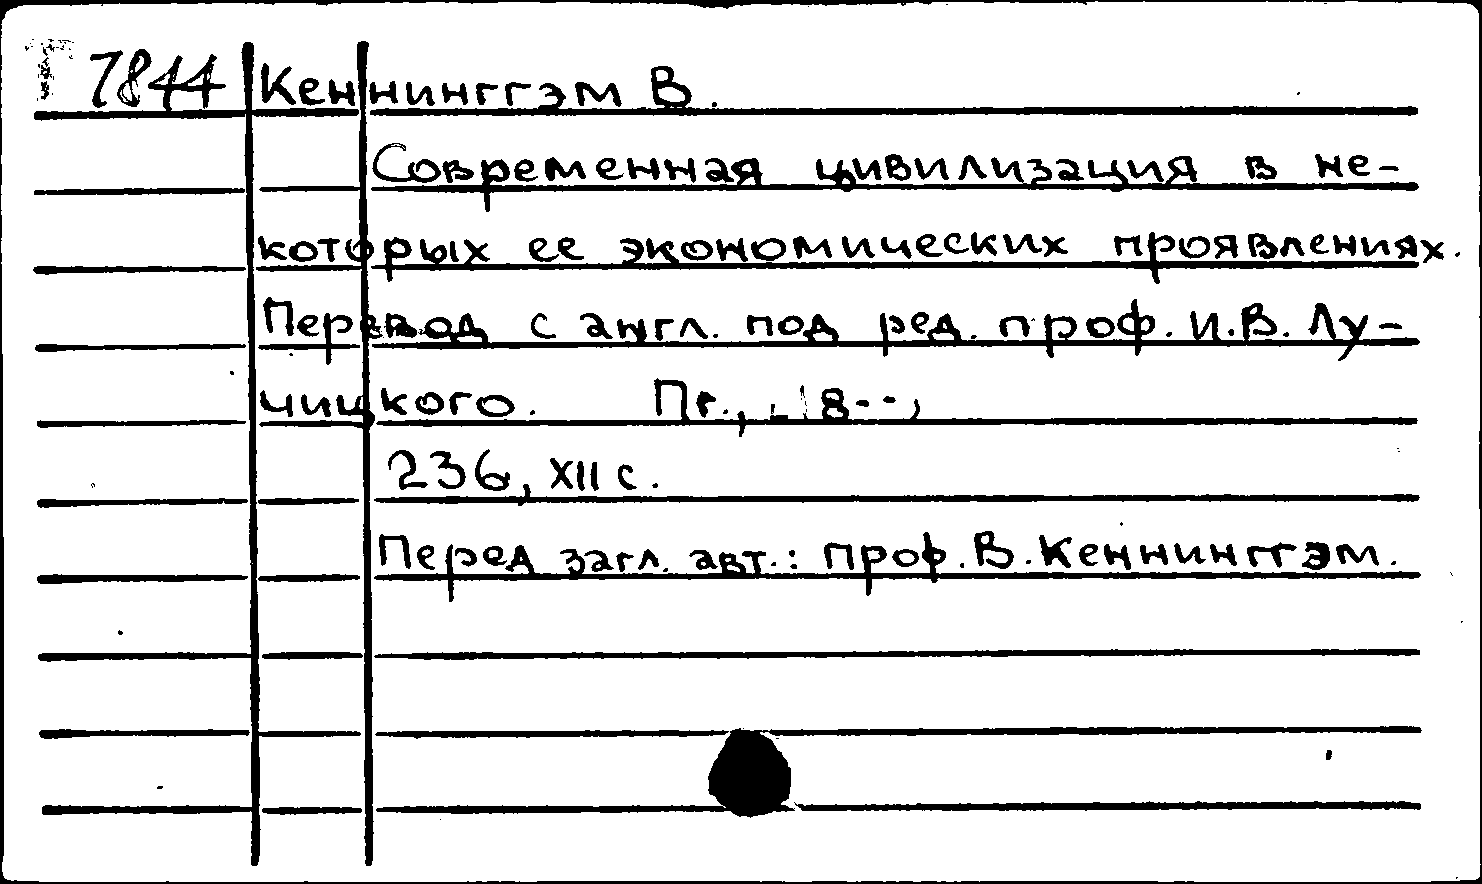 Т 7844 Кеннинггэм В.
Современная цивилизация в не-
которых ее экономических проявлениях.
Перевод с англ. под ред. проф. И.В. Лу-
чицкого. Пг., 18--,
236, XII с.
Перед загл. авт.: проф. В. Кеннинггэм.